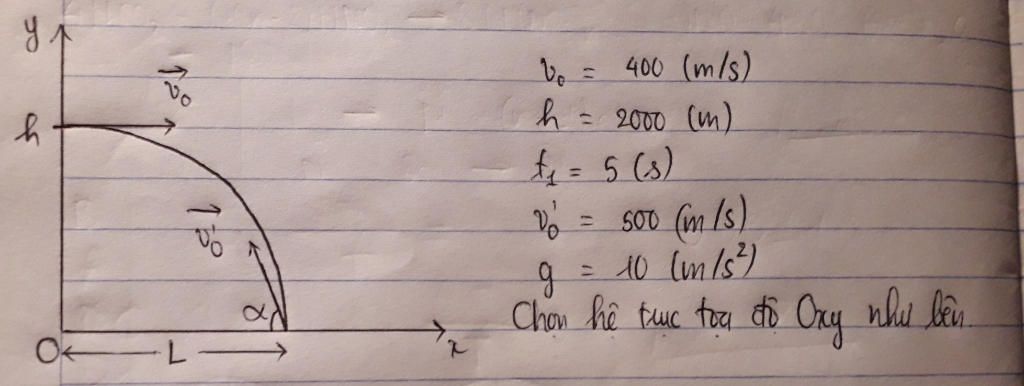 y
h
v₀
v₀'
α
O
L
x
v₀ = 400 (m/s)
h = 2000 (m)
t₁ = 5 (s)
v₀' = 500 (m/s)
g = 10 (m/s²)
Chọn hệ trục tọa độ Oxy như bên